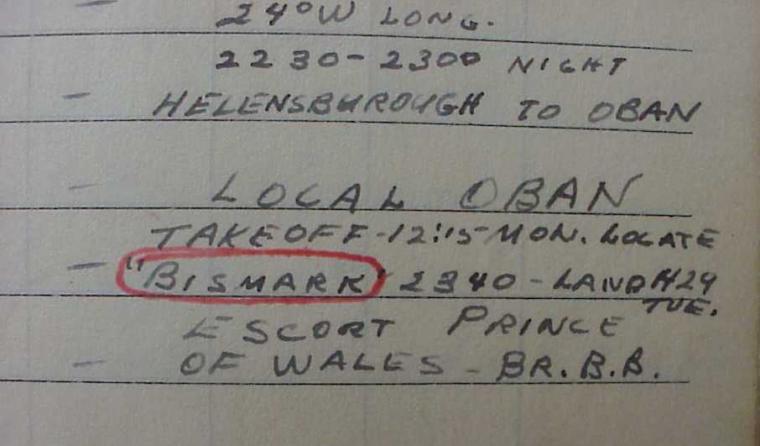 24°W LONG.
2230-2300 NIGHT
HELENSBUROUGH TO OBAN
LOCAL OBAN
TAKEOFF-12:15 MON. LOCATE
"BISMARK" 2340 - LAND 1424
TUE.
ESCORT PRINCE
OF WALES - BR. B.B.